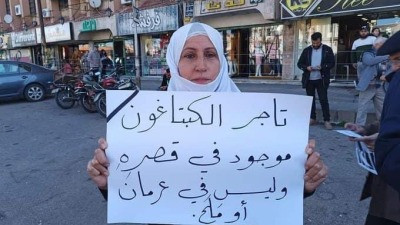 تاجر الكبتاغون
موجود في قصره
وليس في عرمان
أو ملح.